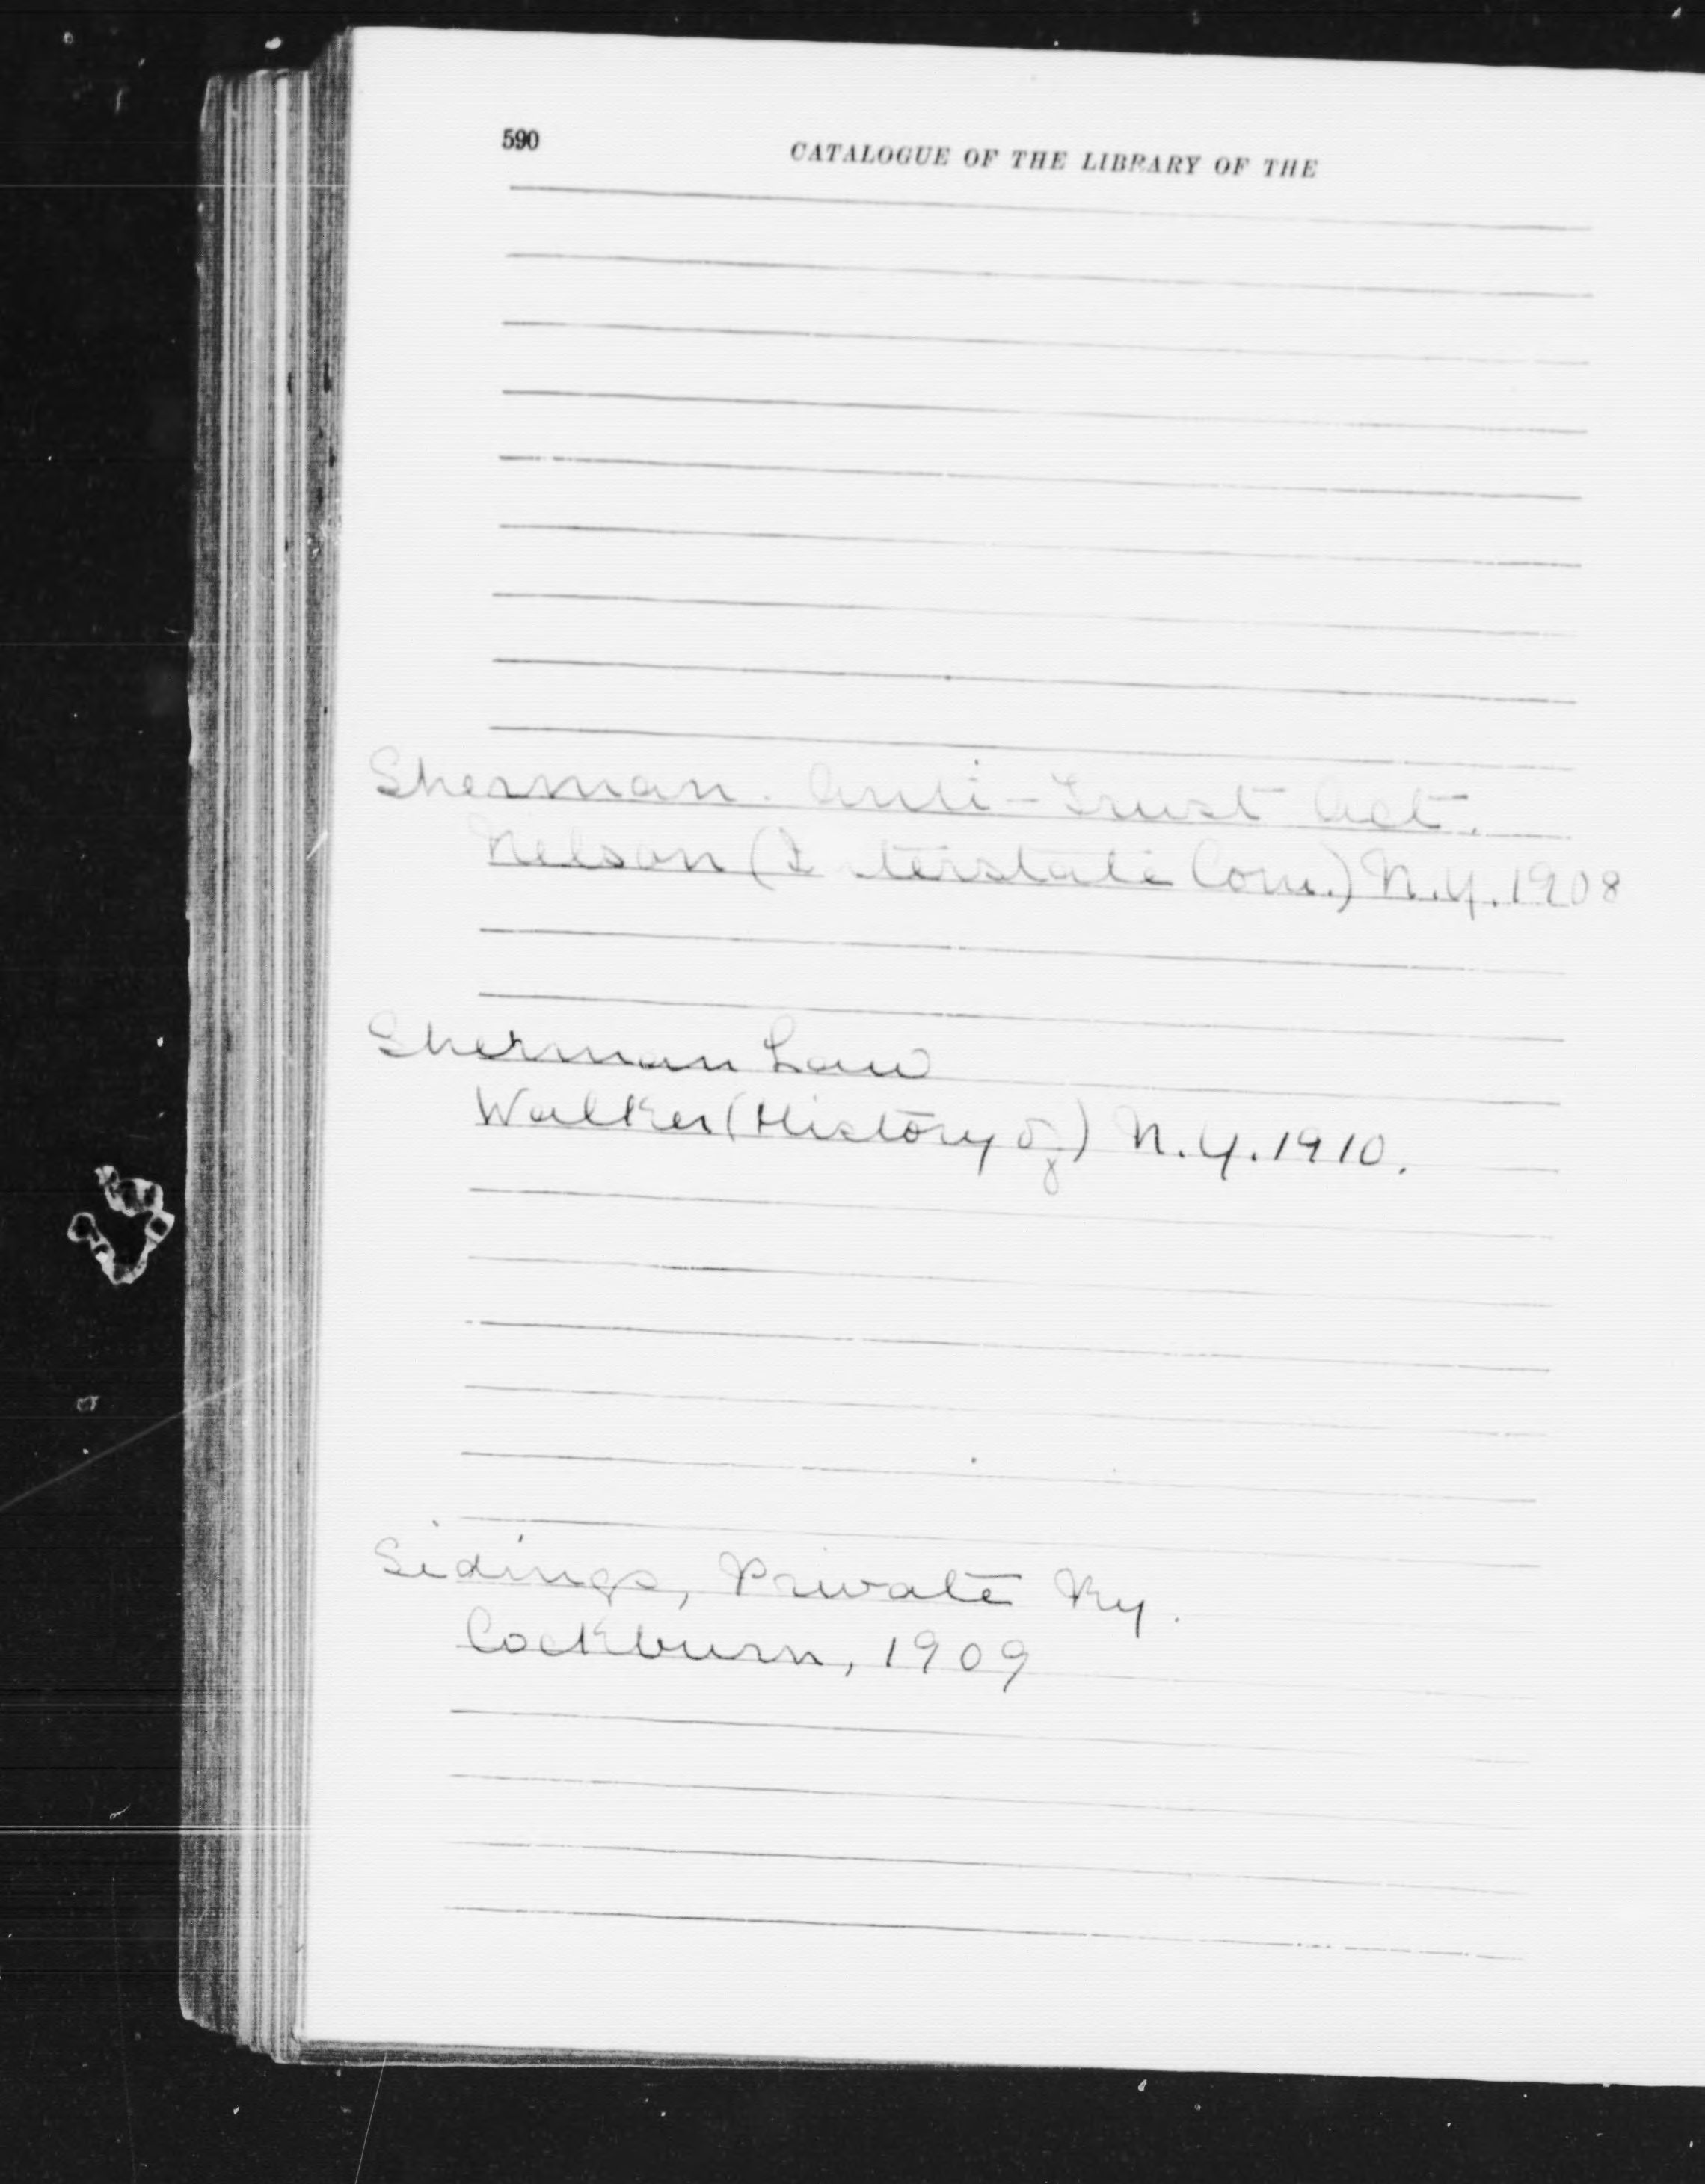 590
CATALOGUE OF THE LIBRARY OF THE
Sherman. Anti-Trust Act.
Nelson (Interstate Com.) N.Y. 1908
Sherman Law
Walker (History of) N.Y. 1910.
Sidings, Private Ry.
Cockburn, 1909